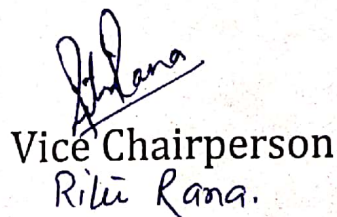 Rana
Vice Chairperson
Ritu Rana.